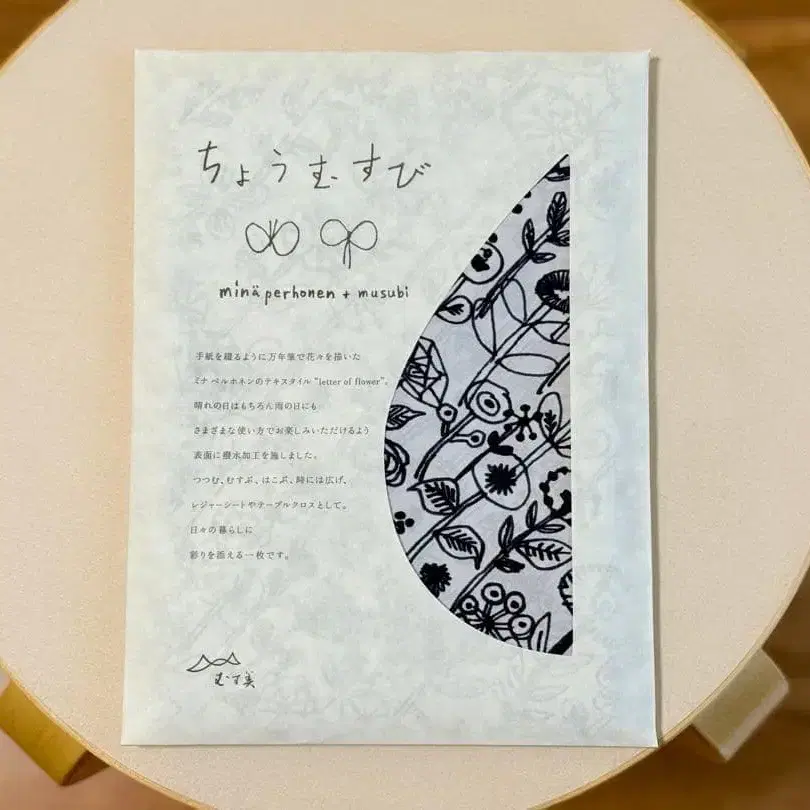 ちょうむすび
minä perhonen + musubi
手紙を綴るように万年筆で花々を描いた
ミナ ペルホネンのテキスタイル “letter of flower”。
晴れの日はもちろん雨の日にも
さまざまな使い方でお楽しみいただけるよう
表面に撥水加工を施しました。
つつむ、むすぶ、はこぶ、時には広げ、
レジャーシートやテーブルクロスとして。
日々の暮らしに
彩りを添える一枚です。
むす美